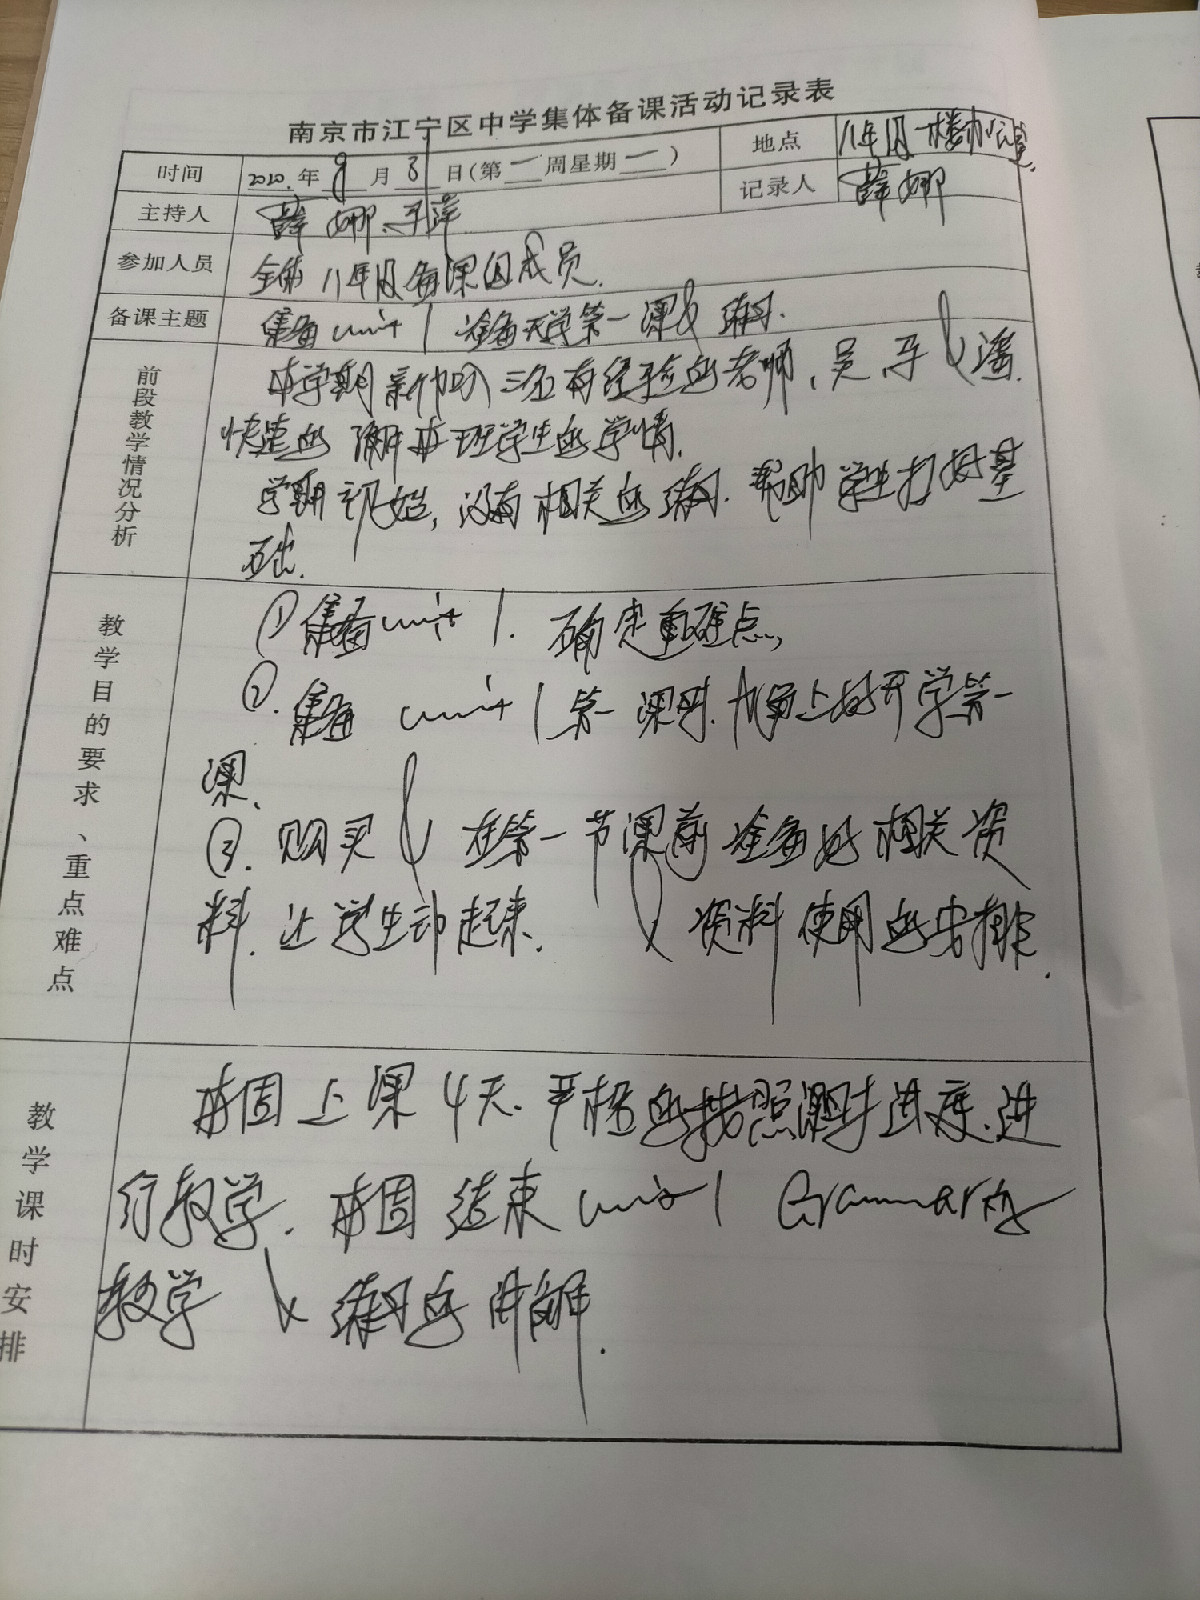 南京市江宁区中学集体备课活动记录表
时间 2020.年 8月31日(第一周星期一) 地点 八年级一楼办公室
主持人 薛娜、 记录人 薛娜
参加人员 全体八年级备课组成员.
备课主题 集备unit 1 准备开学第一课及练习.
前段教学情况分析
本学期新加入三位有经验的老师、吴 及潘.
快速的了解本班学生的学情.
学期初始,没有相关的练习.帮助学生打好基
础.
教学目的要求、重点难点
① 集备unit 1. 确定重难点,
②. 集备 unit 1第一课时. 上好开学第一
课、
③. 购买 在第一节课前准备好相关资
料.让学生动起来. 及资料使用的安排.
教学课时安排
本周上课4天.严格的按照课时进度.进
行教学. 本周结束unit 1 Grammar的
教学及练习的讲解.